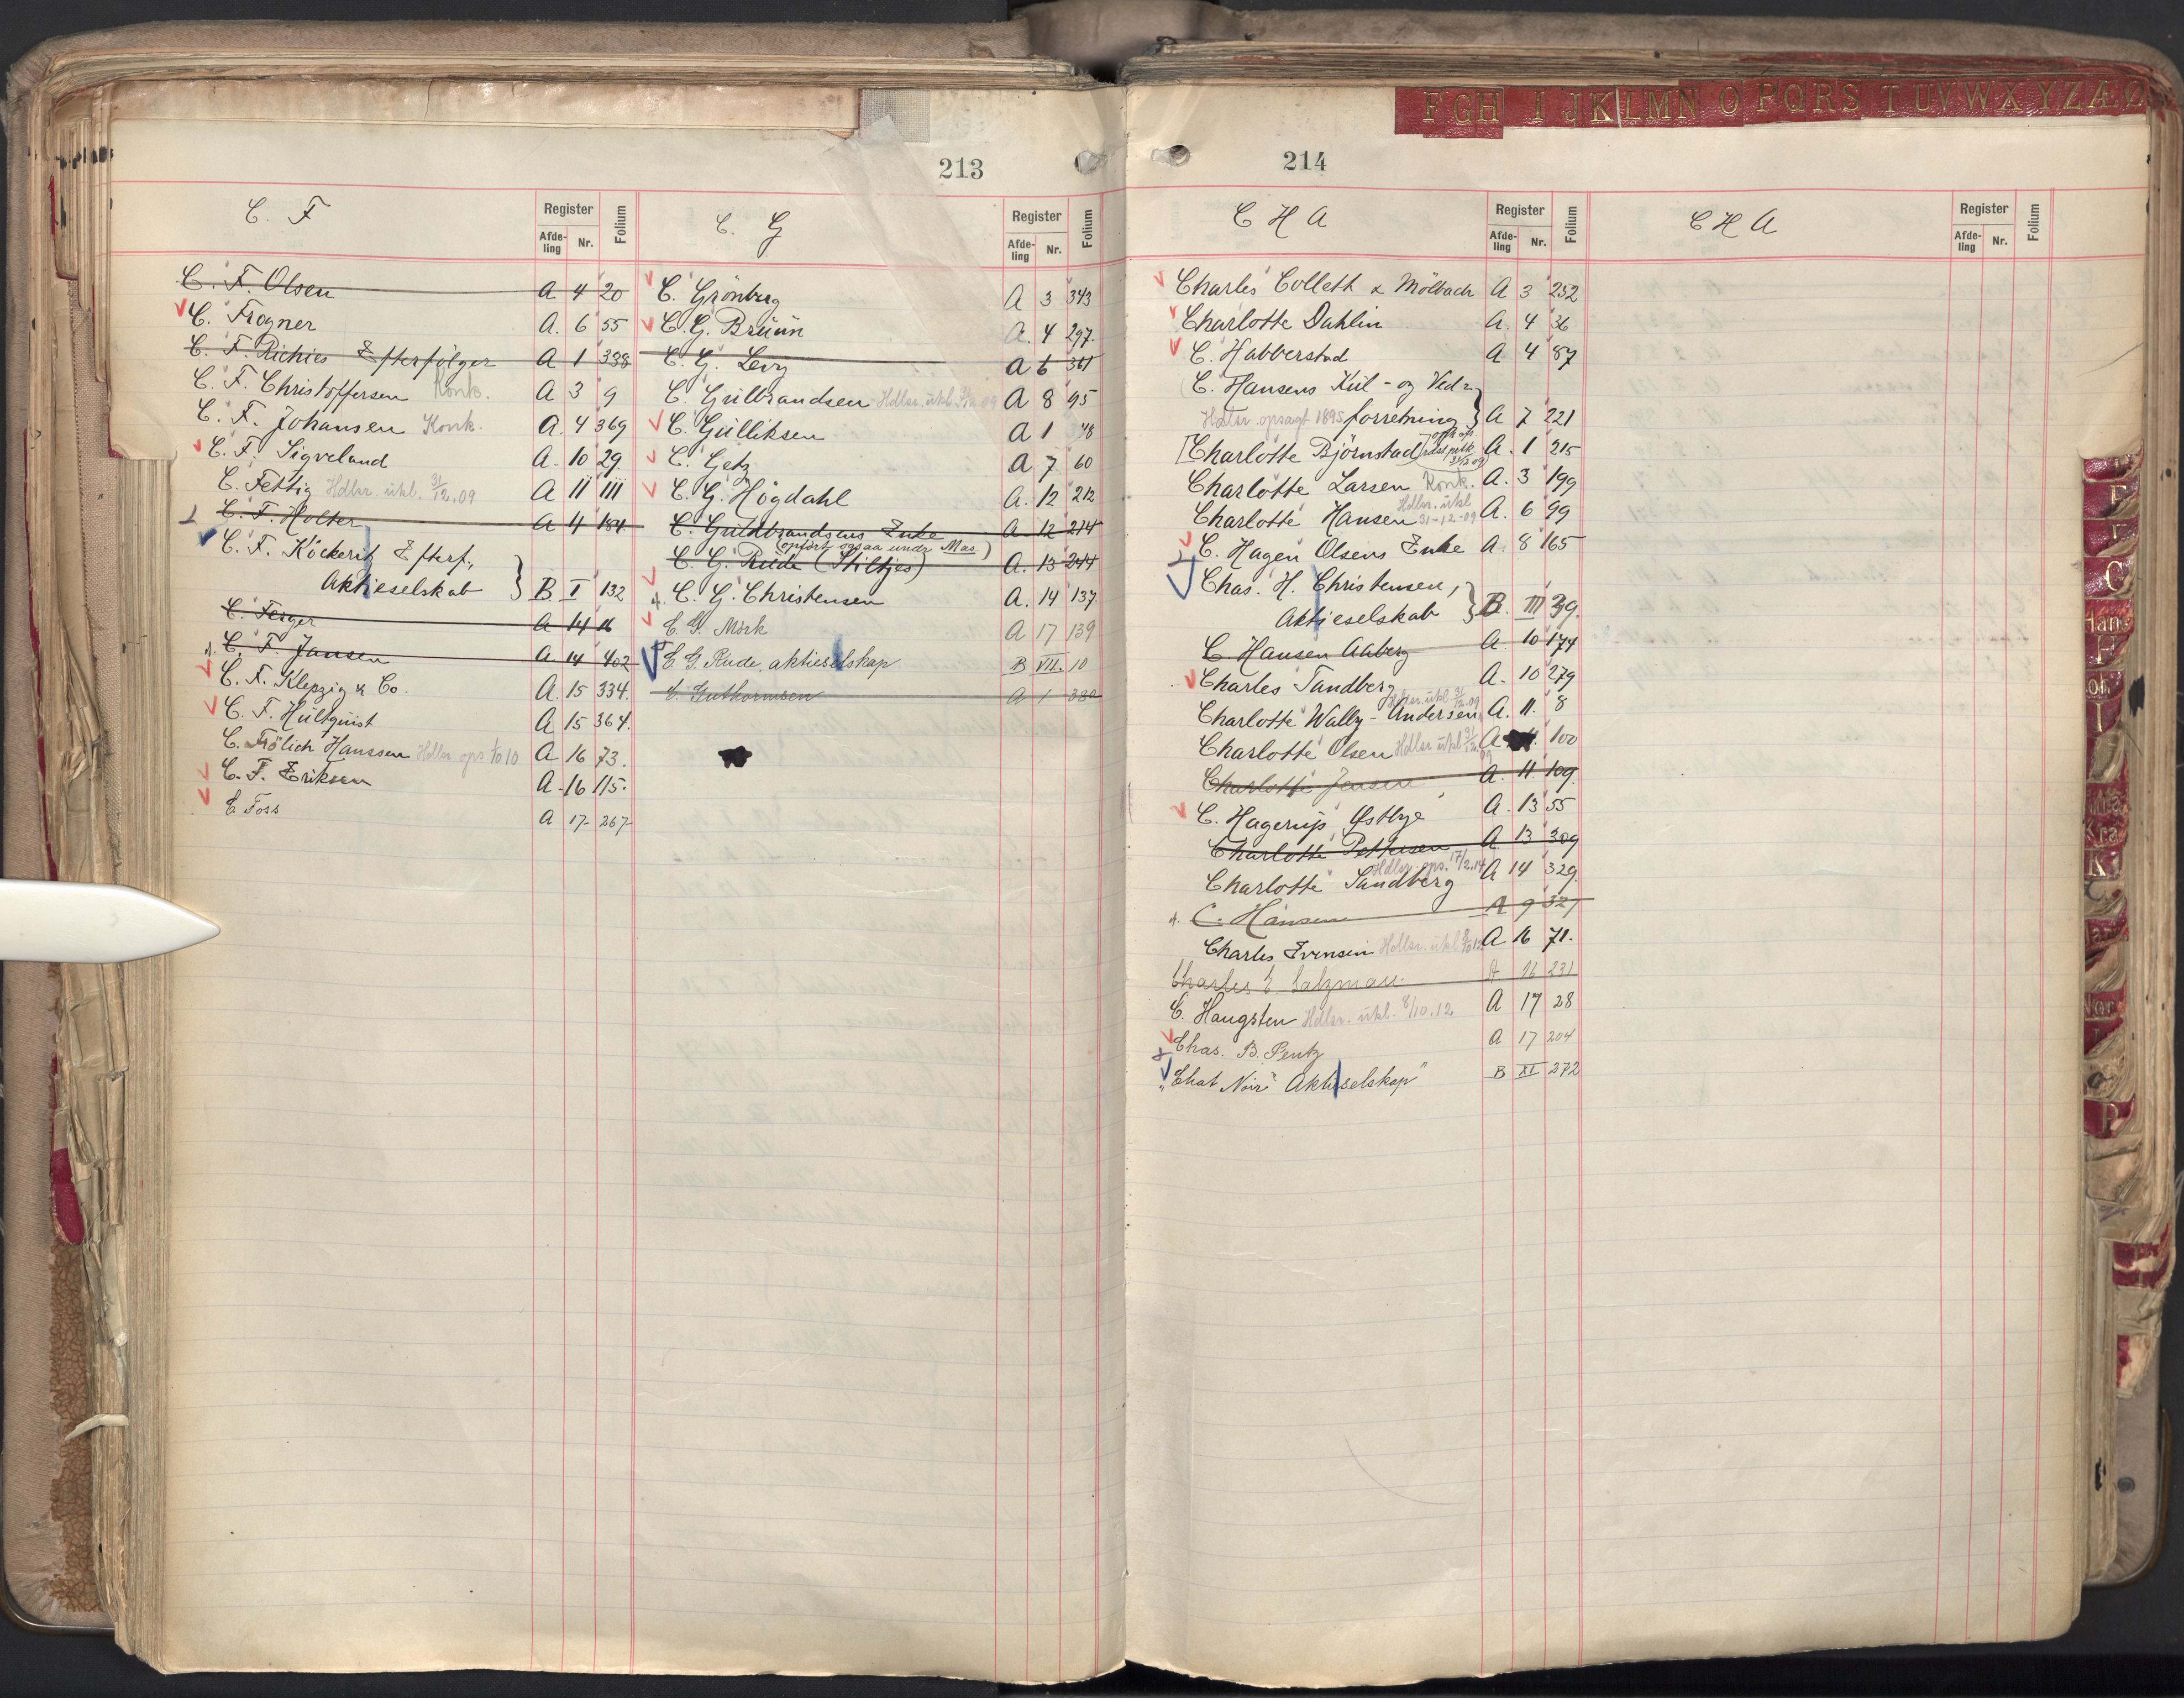 213
C. F
Register
Afde-ling Nr. Folium
C. F. Olsen A 4 20
C. Frogner A. 6 55
C. F. Richies Efterfölger A 1 338
C. F. Christoffersen Konk. A 3 9
C. F. Johansen Konk. A. 4 369
C. F. Sigveland A. 10 29
C. Fettig Hdlsr. ukl. 31/12.09 A 11 111
C. F. Holter A 4 184
C. F. Köckerit Efterf.,
Aktieselskab } B I 132
C. Fesger A 14 16
C. F. Jansen A. 14 402
C. F. Klepzig & Co. A. 15 334.
C. F. Hultquist A 15 364.
C. Frölich Hanssen Hdlsr. ops. 1/10 10 A 16 73.
C. F. Eriksen A. 16 115.
C. Foss A 17 267
C. G
Register
Afde-ling Nr. Folium
C. Grönberg A 3 343
C. G. Bruun A. 4 297.
C. G. Levy A 6 361
C. Gulbrandsen Hdlsr. ukl. 31/12 09 A 8 95
C. Gulliksen A 1 48
C. Getz A 7 60
C. G. Högdahl A. 12 212
C. Guldbrandsens Enke A. 12 274
(opfört ogsaa under Mas.)
C. G. Rude (Stiltjes) A. 13 244
C. G. Christensen A. 14 137
C. G. Mörk A 17 139
C. G. Rude, aktieselskap B VII. 10
C. Guthormsen A 1 380
FGH IJKLMN OPQRS TUVWXYZÆØ
214
C H A
Register
Afde-ling Nr. Folium
Charles Collett & Mölbach A 3 252
Charlotte Dahlin A. 4 36
C. Habberstad A 4 87
C. Hansens Kul- og Ved-
Hdlsr. opsagt 1895 forretning } A 7 221
[Charlotte Björnstad] A. 1 215
Charlotte Larsen Konk. A. 3 199
Charlotte Hansen Hdlsr. ukl. 31-12-09 A. 6 99
C. Hagen Olsens Enke A. 8 165
Chas. H. Christensen,
Aktieselskab } B. III 39.
C. Hansen Aaberg A. 10 174
Charles Tandberg A. 10 279
Charlotte Wally-Andersen Hdlsr. ukl. 31/12.09 A. 11. 8
Charlotte Olsen Hdlsr ukl. 31/12 09 A 11. 100
Charlotte Jensen A. 11. 109.
C. Hagerup Østbye A. 13 55
Charlotte Pettersen A 13 309
Charlotte Sandberg Hdlsr. ops. 17/2.14 A 14 329.
C. Hansen A 9 327
Charles Evensen Hdlsr. ukl. 8/10 12 A 16 71.
Charles E. Salzman. A 16 231
C. Haugsten Hdlsr. ukl. 8/10.12 A 17 28
Chas. B. Pentz A 17 204
"Chat Noir" Aktieselskap" B XI 272
C H A
Register
Afde-ling Nr. Folium